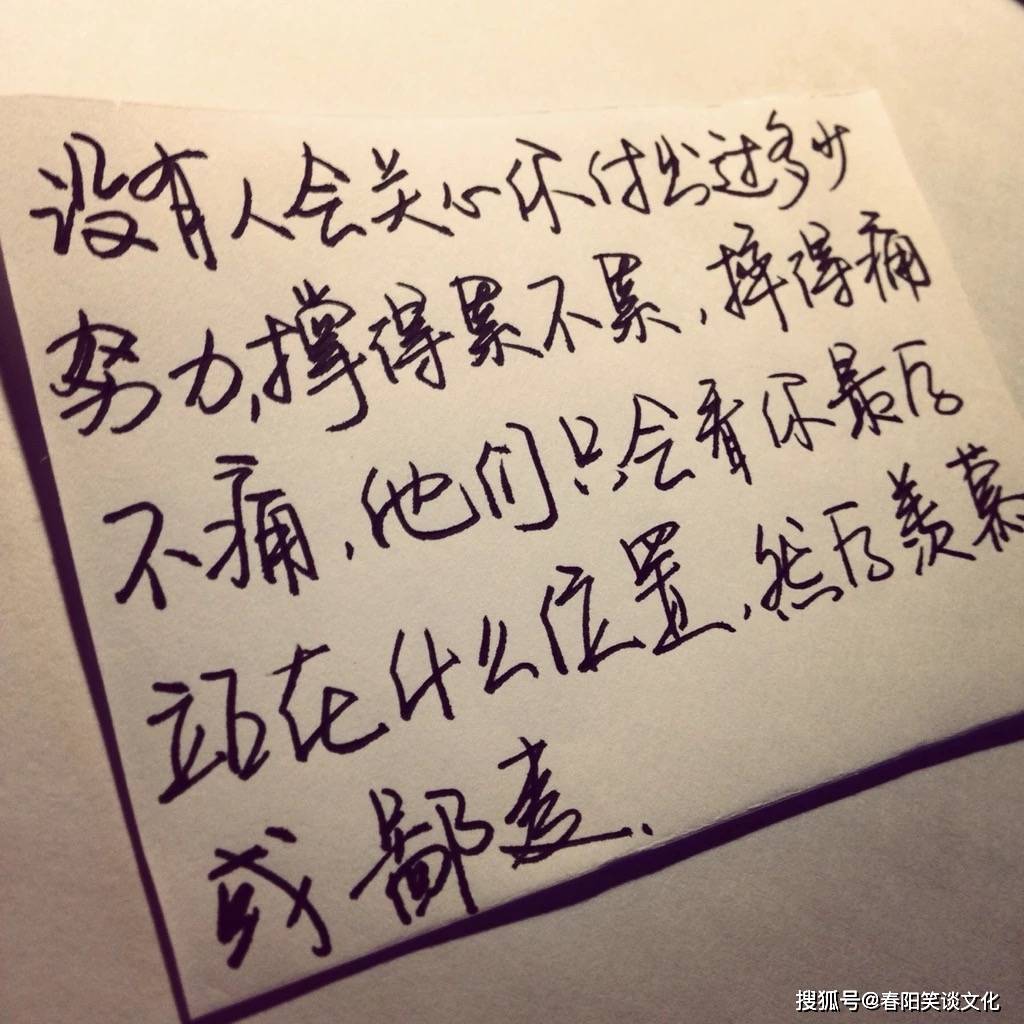 没有人会关心你付出过多少
努力,撑得累不累,摔得痛
不痛,他们只会看你最后
站在什么位置,然后羡慕
或鄙夷.
搜狐号@春阳笑谈文化